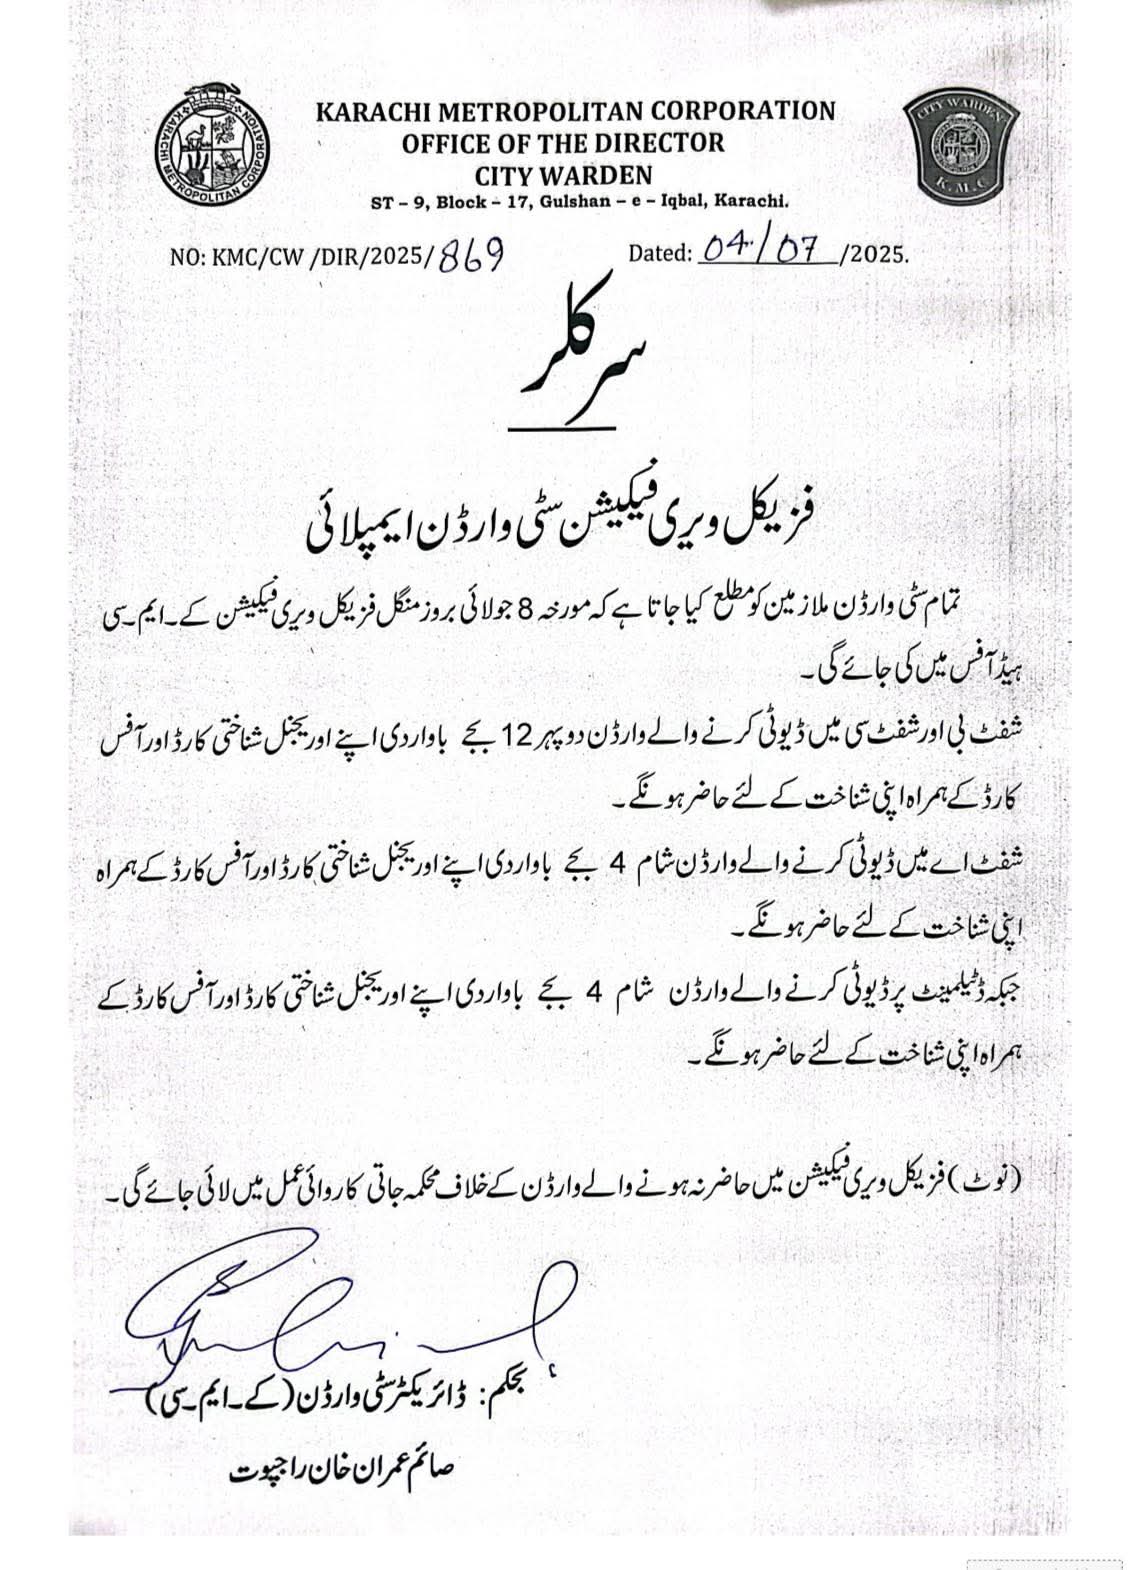 KARACHI METROPOLITAN CORPORATION
OFFICE OF THE DIRECTOR
CITY WARDEN
ST – 9, Block – 17, Gulshan – e – Iqbal, Karachi.
KARACHI METROPOLITAN CORPORATION
CITY WARDENS
K.M.C
NO: KMC/CW /DIR/2025/869 Dated: 04/07/2025.
سرکلر
فزیکل ویری فیکیشن سٹی وارڈن ایمپلائی
تمام سٹی وارڈن ملازمین کو مطلع کیا جاتا ہے کہ مورخہ 8 جولائی بروز منگل فزیکل ویری فیکیشن کے۔ایم۔سی
ہیڈ آفس میں کی جائے گی۔
شفٹ بی اور شفٹ سی میں ڈیوٹی کرنے والے وارڈن دوپہر 12 بجے باوردی اپنے اوریجنل شناختی کارڈ اور آفس
کارڈ کے ہمراہ اپنی شناخت کے لئے حاضر ہونگے۔
شفٹ اے میں ڈیوٹی کرنے والے وارڈن شام 4 بجے باوردی اپنے اوریجنل شناختی کارڈ اور آفس کارڈ کے ہمراہ
اپنی شناخت کے لئے حاضر ہونگے۔
جبکہ ڈٹیلمینٹ پر ڈیوٹی کرنے والے وارڈن شام 4 بجے باوردی اپنے اوریجنل شناختی کارڈ اور آفس کارڈ کے
ہمراہ اپنی شناخت کے لئے حاضر ہونگے۔
(نوٹ) فزیکل ویری فیکیشن میں حاضر نہ ہونے والے وارڈن کے خلاف محکمہ جاتی کاروائی عمل میں لائی جائے گی۔
بحکم: ڈائریکٹر سٹی وارڈن (کے۔ایم۔سی)
صائم عمران خان راجپوت